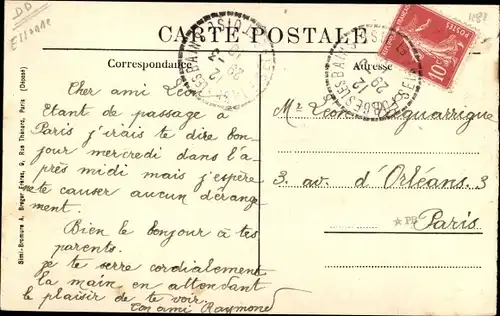 DD
Essonne
CARTE POSTALE
Correspondance
Adresse
POSTES
10c
29
12
29
12
Cher ami Léon
Etant de passage à
Paris j'irais te dire bon-
jour mercredi dans l'a-
près midi mais j'espère
ne te causer aucun dérange-
ment.
Bien le bonjour à tes
parents.
je te serre cordialement
la main en attendant
le plaisir de te voir.
ton ami Raymond
Mr Léon
3. av. d'Orléans. 3
Paris
Simi-Bromure A. Breger Frères, 9, Rue Thénard, Paris (Déposé)